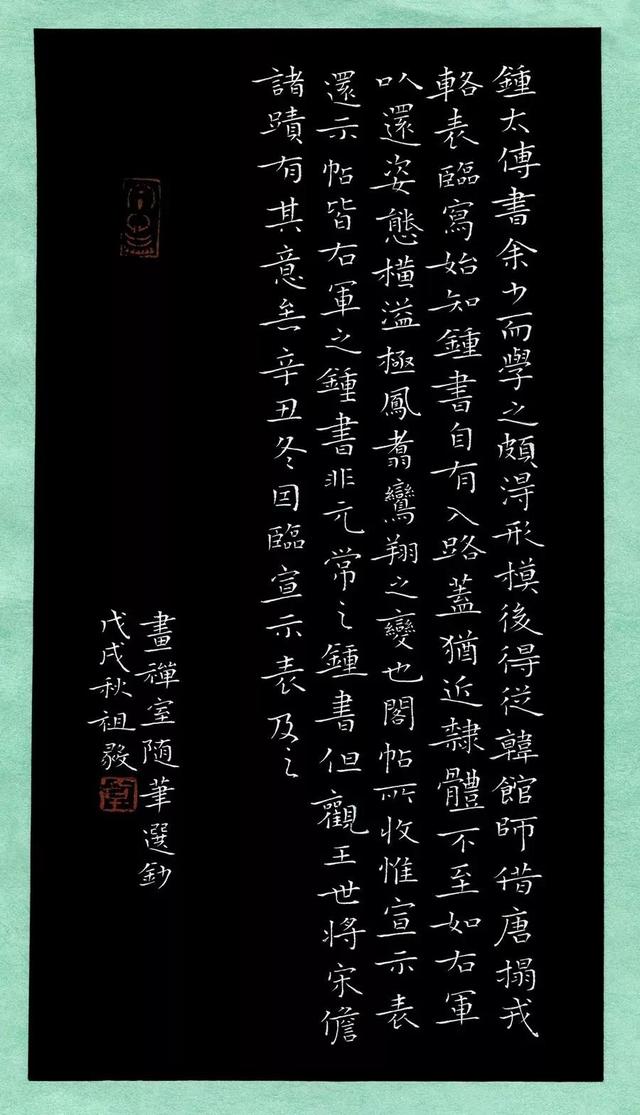 鍾太傅書余少而學之頗得形模後得從韓館師借唐搨戎
輅表臨寫始知鍾書自有入路蓋猶近隸體不至如右軍
以還姿態橫溢極鳳翥鸞翔之變也閣帖所收惟宣示表
還示帖皆右軍之鍾書非元常之鍾書但觀王世將宋儋
諸蹟有其意矣辛丑冬因臨宣示表及之
畫禪室随筆選鈔
戊戌秋祖毅